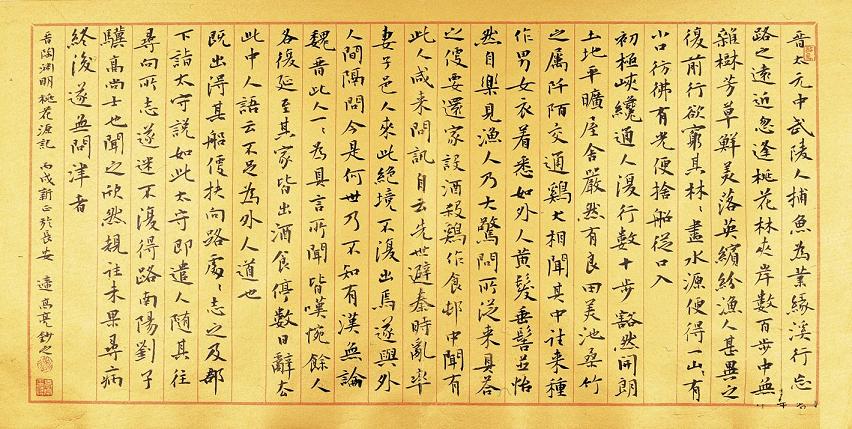 晉太元中武陵人捕魚為業緣溪行忘
路之遠近忽逢桃花林夾岸數百步中無
雜樹芳草鮮美落英繽紛漁人甚異之
復前行欲窮其林〻盡水源便得一山〻有
小口彷彿有光便捨船從口入
初極峽纔通人復行數十步豁然開朗
土地平曠屋舍嚴然有良田美池桑竹
之屬阡陌交通鷄犬相聞其中往来種
作男女衣着悉如外人黃髮垂髫並怡
然自樂見漁人乃大驚問所從来具答
之便要還家設酒殺鷄作食邨中聞有
此人咸来問訊自云先世避秦時亂率
妻子邑人來此絕境不復出焉遂與外
人間隔問今是何世乃不知有漢無論
魏晉此人一〻為具言所聞皆嘆惋餘人
各復延至其家皆出酒食停數日辭去
此中人語云不足為外人道也
既出得其船便扶向路處〻志之及郡
下詣太守說如此太守即遣人隨其往
尋向所志遂迷不復得路南陽劉子
驥高尚士也聞之欣然規往未果尋病
終後遂無問津者
晉陶淵明桃花源記 丙戌新正於長安 高亮鈔之